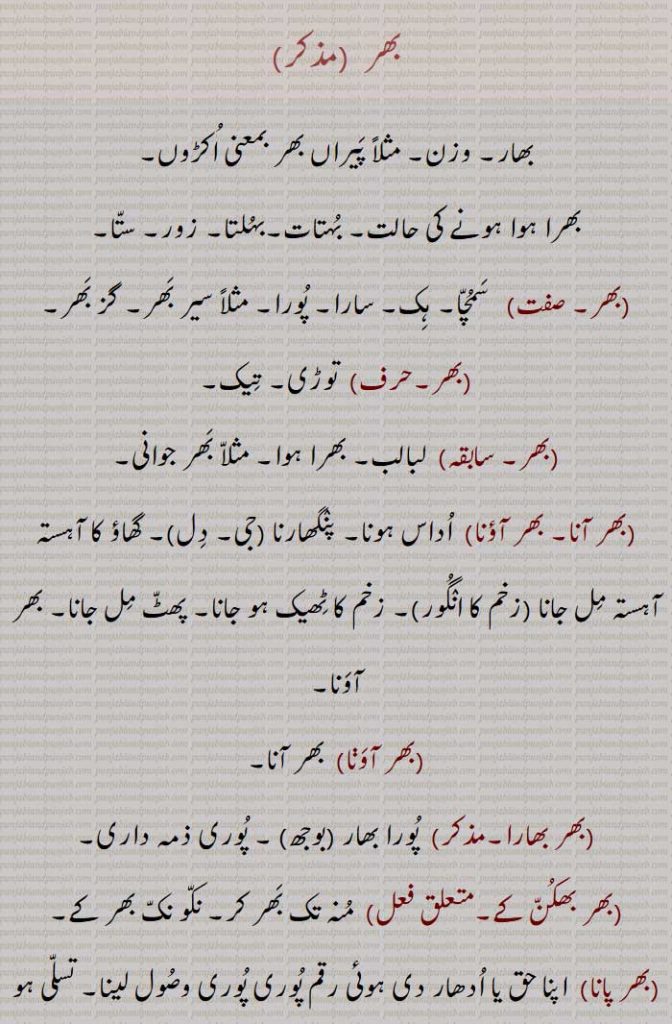 بھر (مذکر)
بھار۔ وزن۔ مثلاً پَیراں بھر بمعنی اُکڑوں۔
بھرا ہوا ہونے کی حالت۔ بُہتات۔بہُلتا۔ زور۔ ستّا۔
(بھر۔ صفت) سَمُچّا۔ ہِک۔ سارا۔ پُورا۔ مثلاً سیر بَھر۔ گز بَھر۔
(بھر۔حرف) توڑی۔ تِیک۔
(بھر۔ سابقہ) لبالب۔ بھرا ہوا۔ مثلاّ بَھر جوانی۔
(بھر آنا۔ بھر آؤنا) اُداس ہونا۔ پنگھارنا (جی۔ دِل)۔ گھاؤ کا آہستہ
آہستہ مِل جانا (زخم کا انگُور)۔ زخم کا ٹِھیک ہو جانا۔ پھٹّ مِل جانا۔ بھر
آؤنا۔
(بھر آؤنا) بھر آنا۔
(بھر بھارا۔مذکر) پُورا بھار (بوجھ)۔ پُوری ذمہ داری۔
(بھر بھکُنّ کے۔متعلق فعل) مُنہ تک بَھر کر۔ نکّو نکّ بھر کے۔
(بھر پانا) اپنا حق یا اُدھار دی ہوئی رقم پُوری پُوری وصُول لینا۔ تسلّی ہو